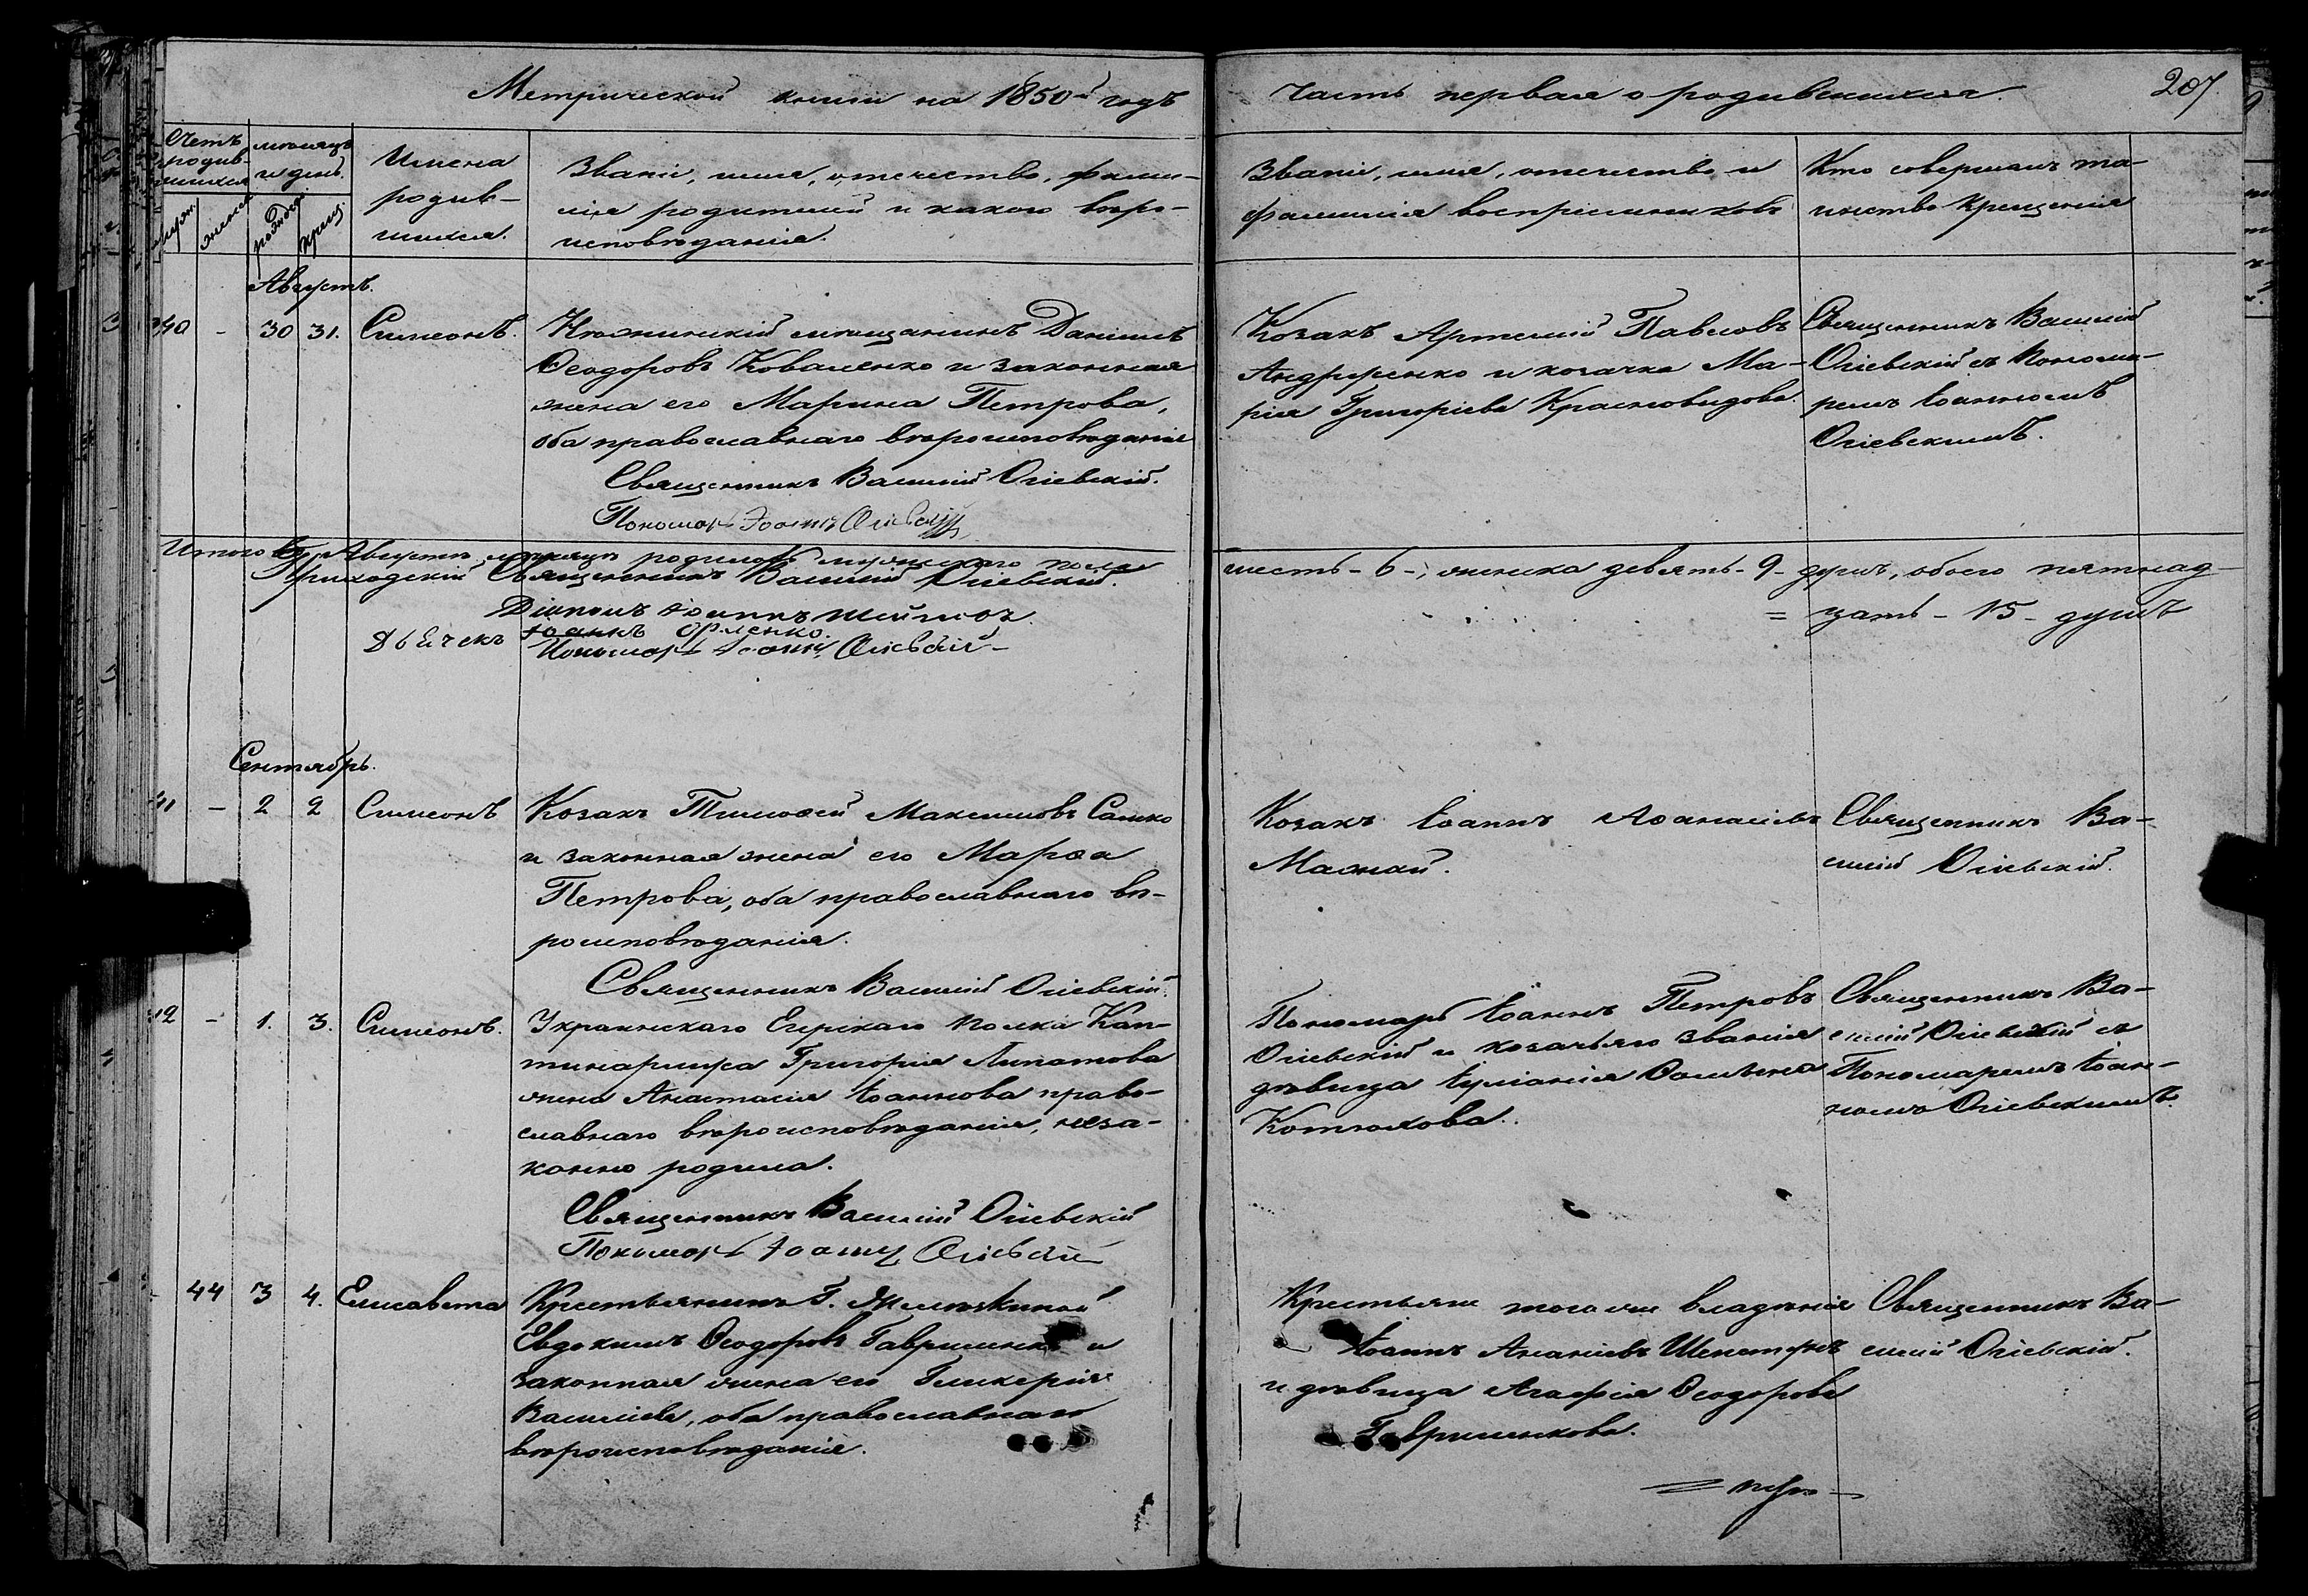 Метрической книги на 1850й годъ
Часть первая о родившихся.
207.
Счетъ родив-шихся
мѣсяцъ и день.
Имена родив-шихся.
Званіе, имя, отечество, фами-
лія родителей и какого вѣро-
исповѣданія.
Званіе, имя, отечество и
фамилія воспріемниковъ
Кто совершалъ та-
инство Крещенія
муж. женск. рожд. крещ.
Августъ.
40 - 30 31. Симеонъ.
Нѣжинскій мѣщанинъ Даніилъ
Ѳеодоровъ Коваленко и законная
жена его Марина Петрова,
оба православнаго вѣроисповѣданія
Священникъ Василій Огіевскій.
Пономарь Іоаннъ Огіевскій
Козакъ Артемій Павловъ
Андреенко и козачка Ма-
рія Григоріева Красновидова.
Священникъ Василій
Огіевскій съ Понома-
ремъ Іоанномъ
Огіевскимъ.
Итого въ Августѣ мѣсяцѣ родилось мужескаго пола
шесть - 6 -, женска девять - 9 - душъ, обоего пятнад-
= цать - 15 - душъ
Приходскій Священникъ Василій Огіевскій.
Діаконъ Іоаннъ
Дьячекъ Іоаннъ
Пономарь Іоаннъ Огіевскій
Сентябрь.
41 - 2 2 Симеонъ
Козакъ Тимоѳей Максимовъ Сашко
и законная жена его Марѳа
Петрова, оба православнаго вѣ-
роисповѣданія.
Священникъ Василій Огіевскій.
Козакъ Іоаннъ Аѳанасіевъ
Священникъ Ва-
силій Огіевскій.
42 - 1. 3. Симеонъ.
Украинскаго Егерскаго Полка Кап-
тинармуса Григорія Липатова
жена Анастасія Іоаннова право-
славнаго вѣроисповѣданія, неза-
конно родила.
Священникъ Василій Огіевскій
Пономарь Іоаннъ Огіевскій
Пономарь Іоаннъ Петровъ
Огіевскій и козачьяго званія
дѣвица Іуліанія
Котюхова.
Священникъ Ва-
силій Огіевскій съ
Пономаремъ Іоан-
номъ Огіевскимъ.
- 44 3 4. Елисавета
Крестьянинъ Г.
Евдокимъ Ѳеодоровъ Гавриленко и
законная жена его Гликерія
Василіева, оба православнаго
вѣроисповѣданія.
Крестьяне того же владѣнія
Іоаннъ Ананіевъ
и дѣвица Агафія Ѳеодорова
Гавриленкова.
Священникъ Ва-
силій Огіевскій.